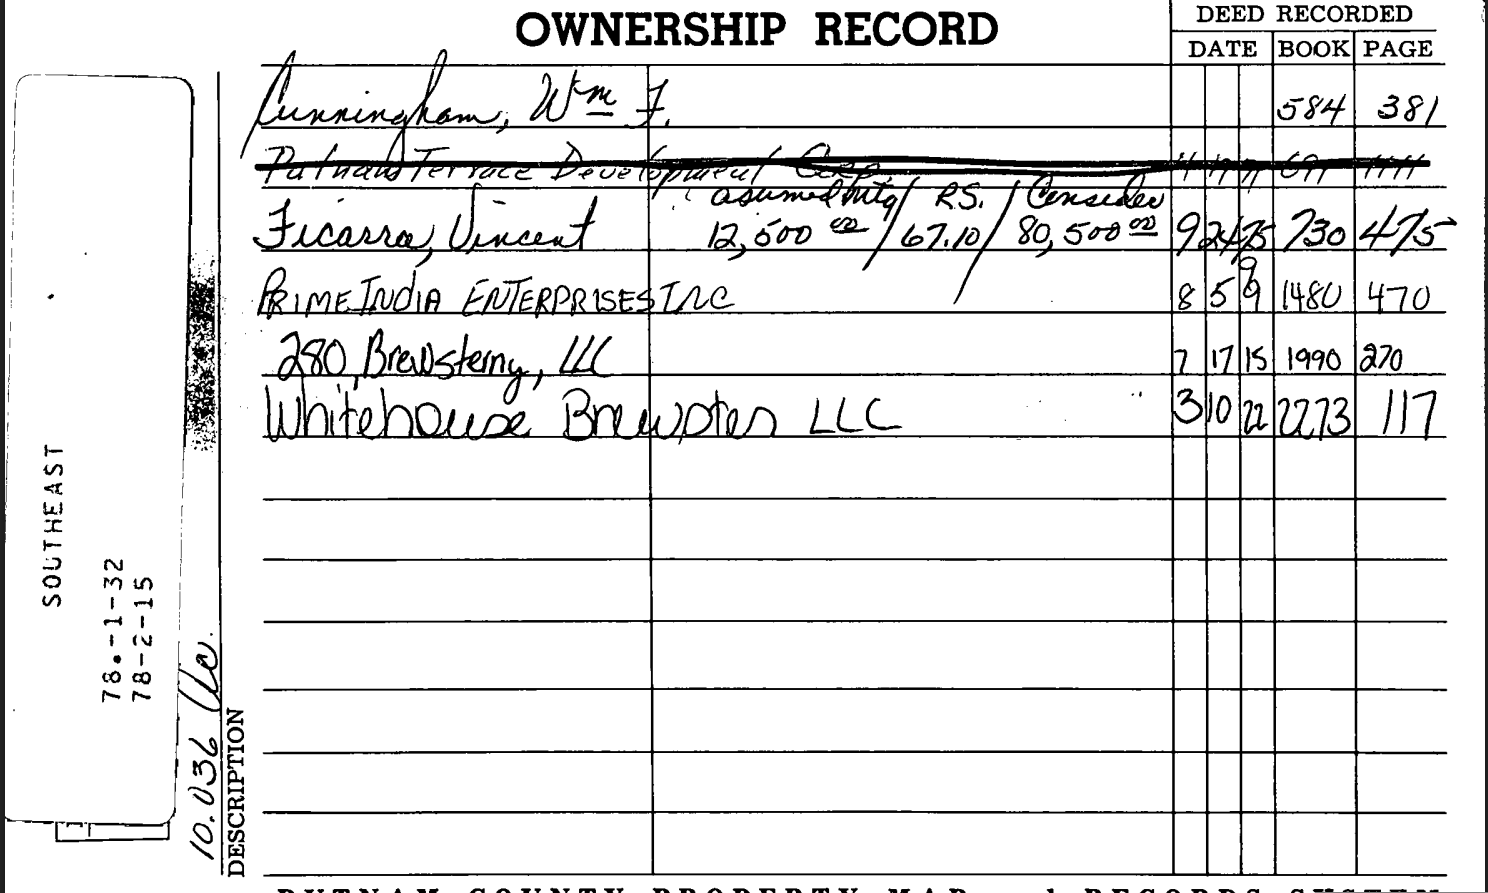 OWNERSHIP RECORD
DEED RECORDED
DATE BOOK PAGE
Cunningham, Wm F. 584 381
Putnam Terrace Development Corp.
asumed mtg / R.S. / Consider
Ficarra, Vincent 12,500 00 / 67.10 / 80,500 00 9 24 75 730 475
PRIME INDIA ENTERPRISES INC 8 5 99 1480 470
280 Brewsterny, LLC 7 17 15 1990 270
Whitehouse Brewster LLC 3 10 22 2273 117
SOUTHEAST
78.-1-32
78-2-15
10.036
DESCRIPTION
PUTNAM COUNTY PROPERTY MAP and RECORDS SYSTEM